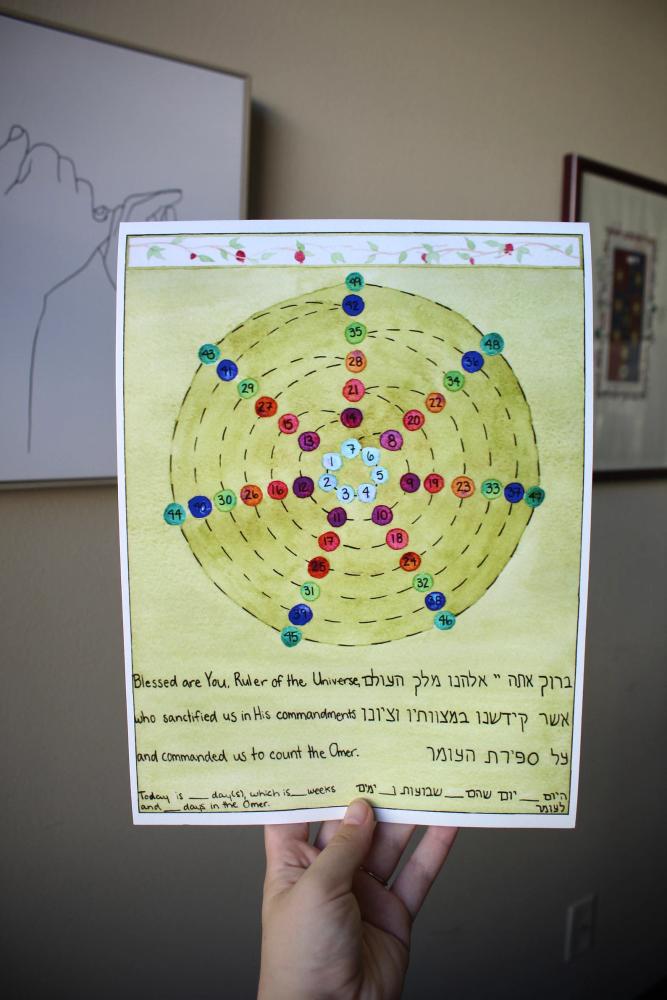 49
42
35
43 48
41 28 36
29 21 34
27 22
15 14 20
13 8
7
1 6
5
2
3 4
44 40 30 26 16 12 9 19 23 33 37 47
11 10
17 18
25 24
31 32
39 38
45 46
Blessed are You, Ruler of the Universe,
ברוך אתה יי אלהנו מלך העולם
who sanctified us in His commandments
אשר קידשנו במצוותיו וציונו
and commanded us to count the Omer.
על ספירת העומר
Today is ___ day(s), which is ___ weeks
and ___ days in the Omer.
היום ___ יום שהם ___ שבועות ו___ ימים
לעומר